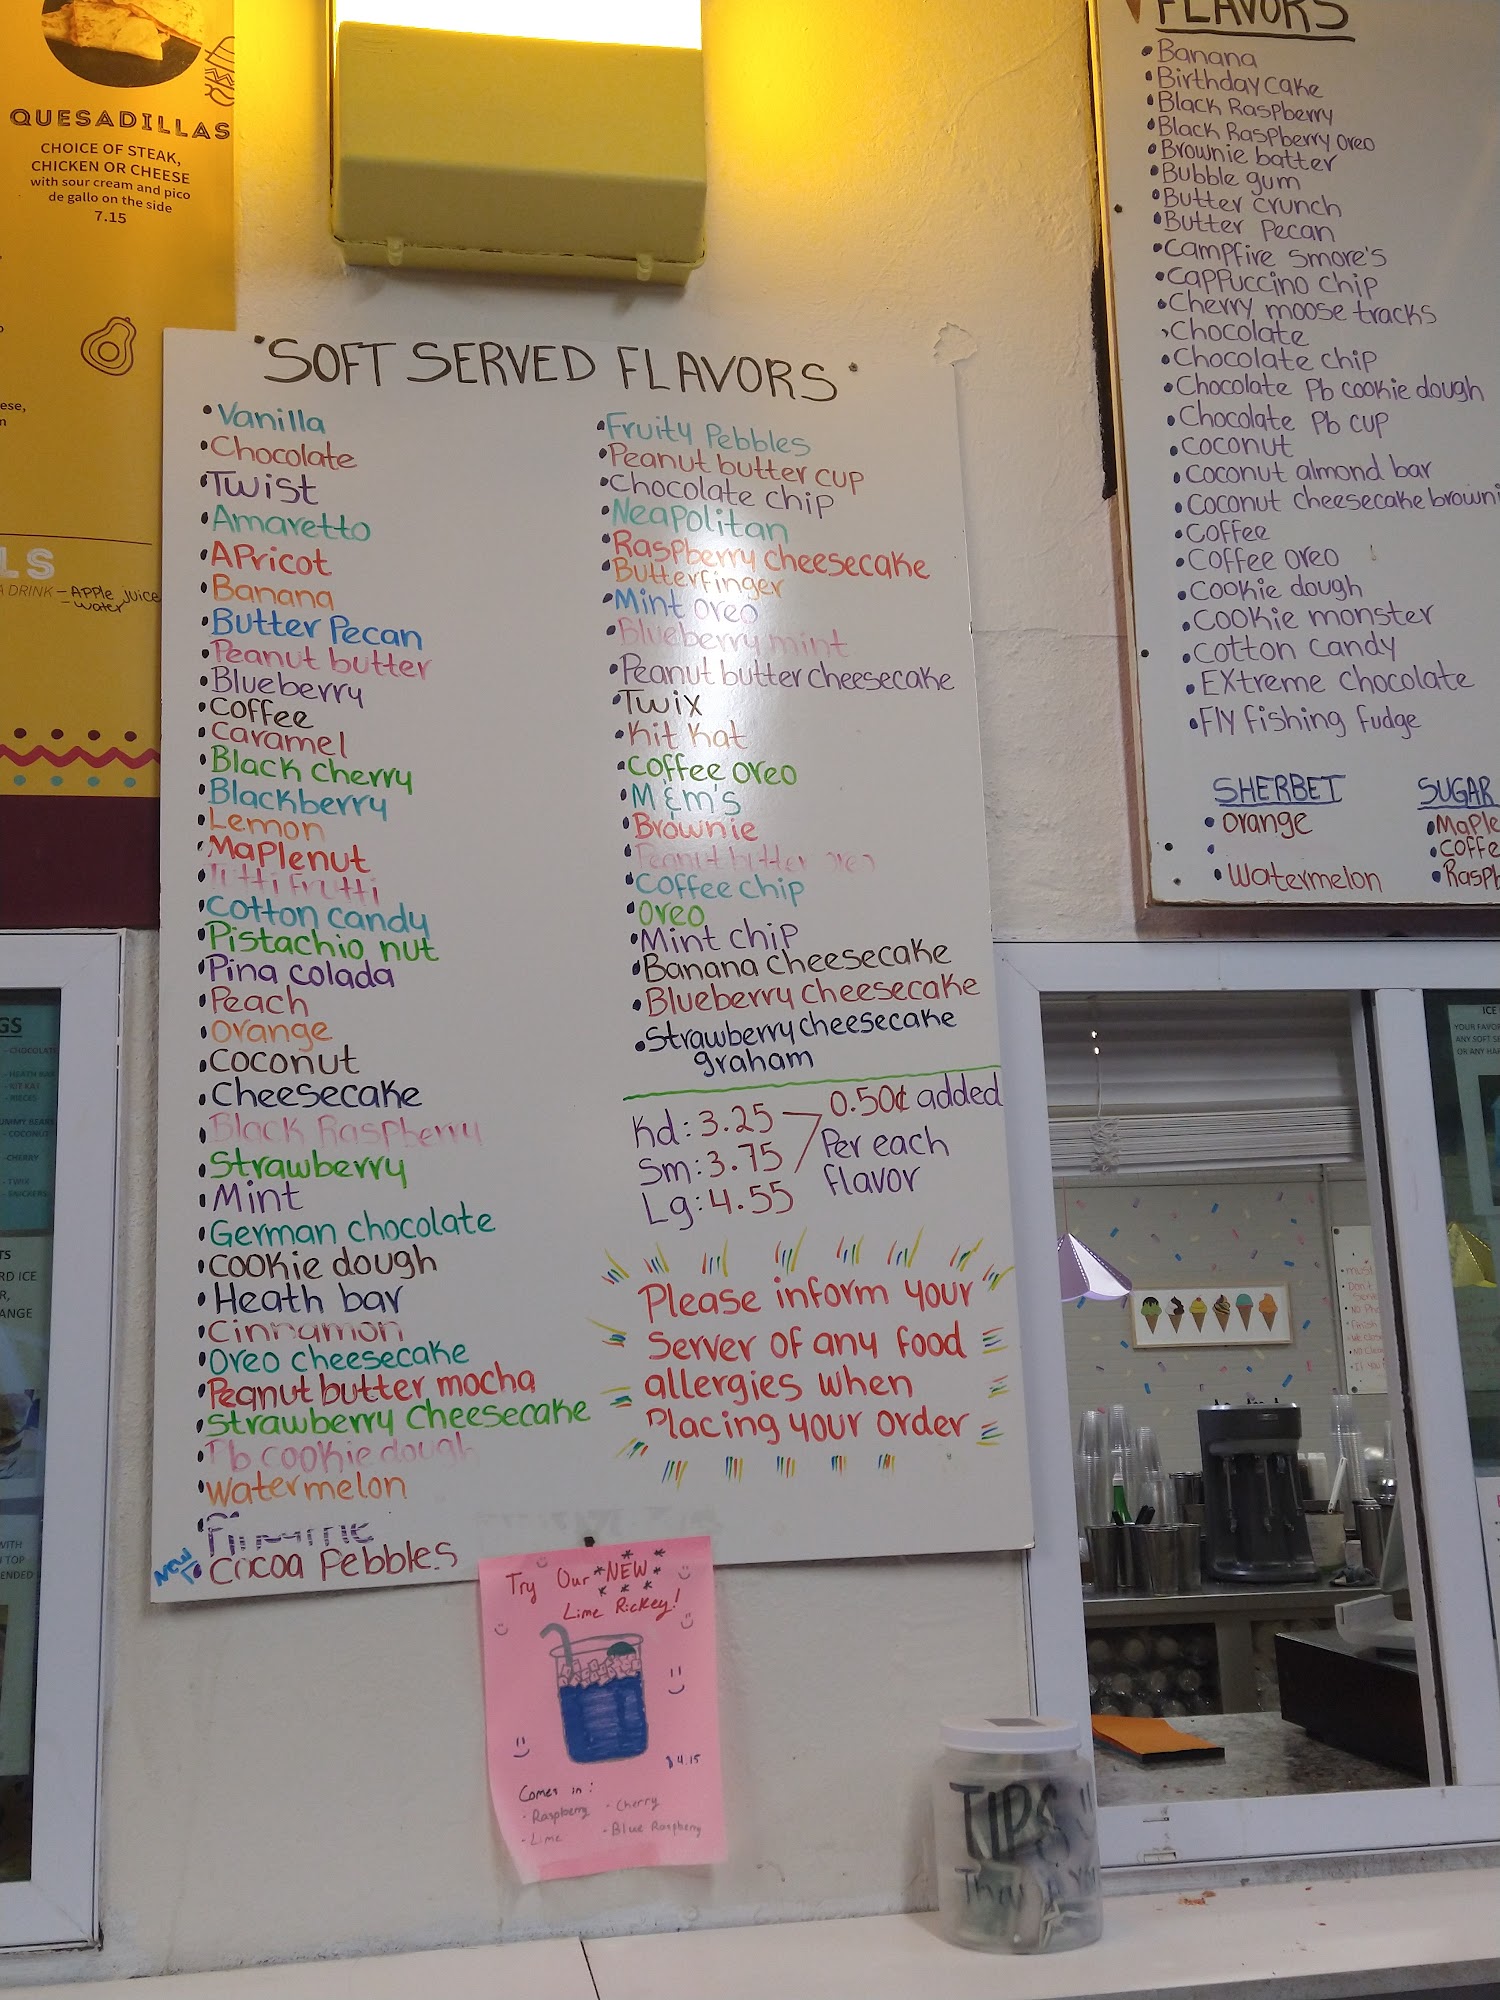 QUESADILLAS
CHOICE OF STEAK,
CHICKEN OR CHEESE
with sour cream and pico
de gallo on the side
7.15
DRINK - Apple juice
- water
"SOFT SERVED FLAVORS"
•Vanilla
•Chocolate
•Twist
•Amaretto
•Apricot
•Banana
•Butter Pecan
•Peanut butter
•Blueberry
•Coffee
•Caramel
•Black Cherry
•Blackberry
•Lemon
•Maplenut
•Tutti Frutti
•Cotton candy
•Pistachio nut
•Pina colada
•Peach
•Orange
•Coconut
•Cheesecake
•Black Raspberry
•Strawberry
•Mint
•German chocolate
•Cookie dough
•Heath bar
•Cinnamon
•Oreo cheesecake
•Peanut butter mocha
•Strawberry Cheesecake
•Pb cookie dough
•Watermelon
NEW
•Cocoa Pebbles
•Fruity Pebbles
•Peanut butter cup
•Chocolate chip
•Neapolitan
•Raspberry cheesecake
•Butterfinger
•Mint oreo
•Blueberry mint
•Peanut butter cheesecake
•Twix
•Kit Kat
•Coffee Oreo
•M&m's
•Brownie
•Peanut butter oreo
•Coffee chip
•Oreo
•Mint chip
•Banana cheesecake
•Blueberry cheesecake
•Strawberry cheesecake
graham
Kd: 3.25
Sm: 3.75
Lg: 4.55
0.50¢ added
Per each
flavor
Please inform your
server of any food
allergies when
Placing your order
Try Our *NEW*
Lime Rickey!
$4.15
Comes in:
- Raspberry - Cherry
- Lime - Blue Raspberry
FLAVORS
•Banana
•Birthday cake
•Black Raspberry
•Black Raspberry oreo
•Brownie batter
•Bubble gum
•Butter crunch
•Butter Pecan
•Campfire smore's
•Cappuccino chip
•Cherry moose tracks
•Chocolate
•Chocolate chip
•Chocolate Pb cookie dough
•Chocolate Pb cup
•Coconut
•Coconut almond bar
•Coconut cheesecake browni
•Coffee
•Coffee oreo
•Cookie dough
•Cookie monster
•Cotton candy
•Extreme chocolate
•Fly fishing fudge
SHERBET
•Orange
•Watermelon
SUGAR
•Maple
•Coffe
•Raspb
TIPS